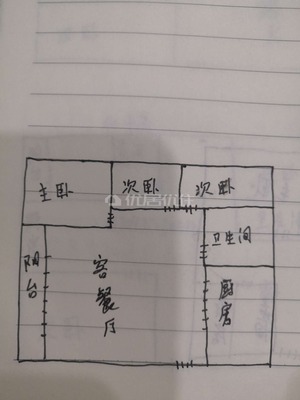 主卧
次卧
次卧
优居优住
阳台
客餐厅
卫生间
厨房